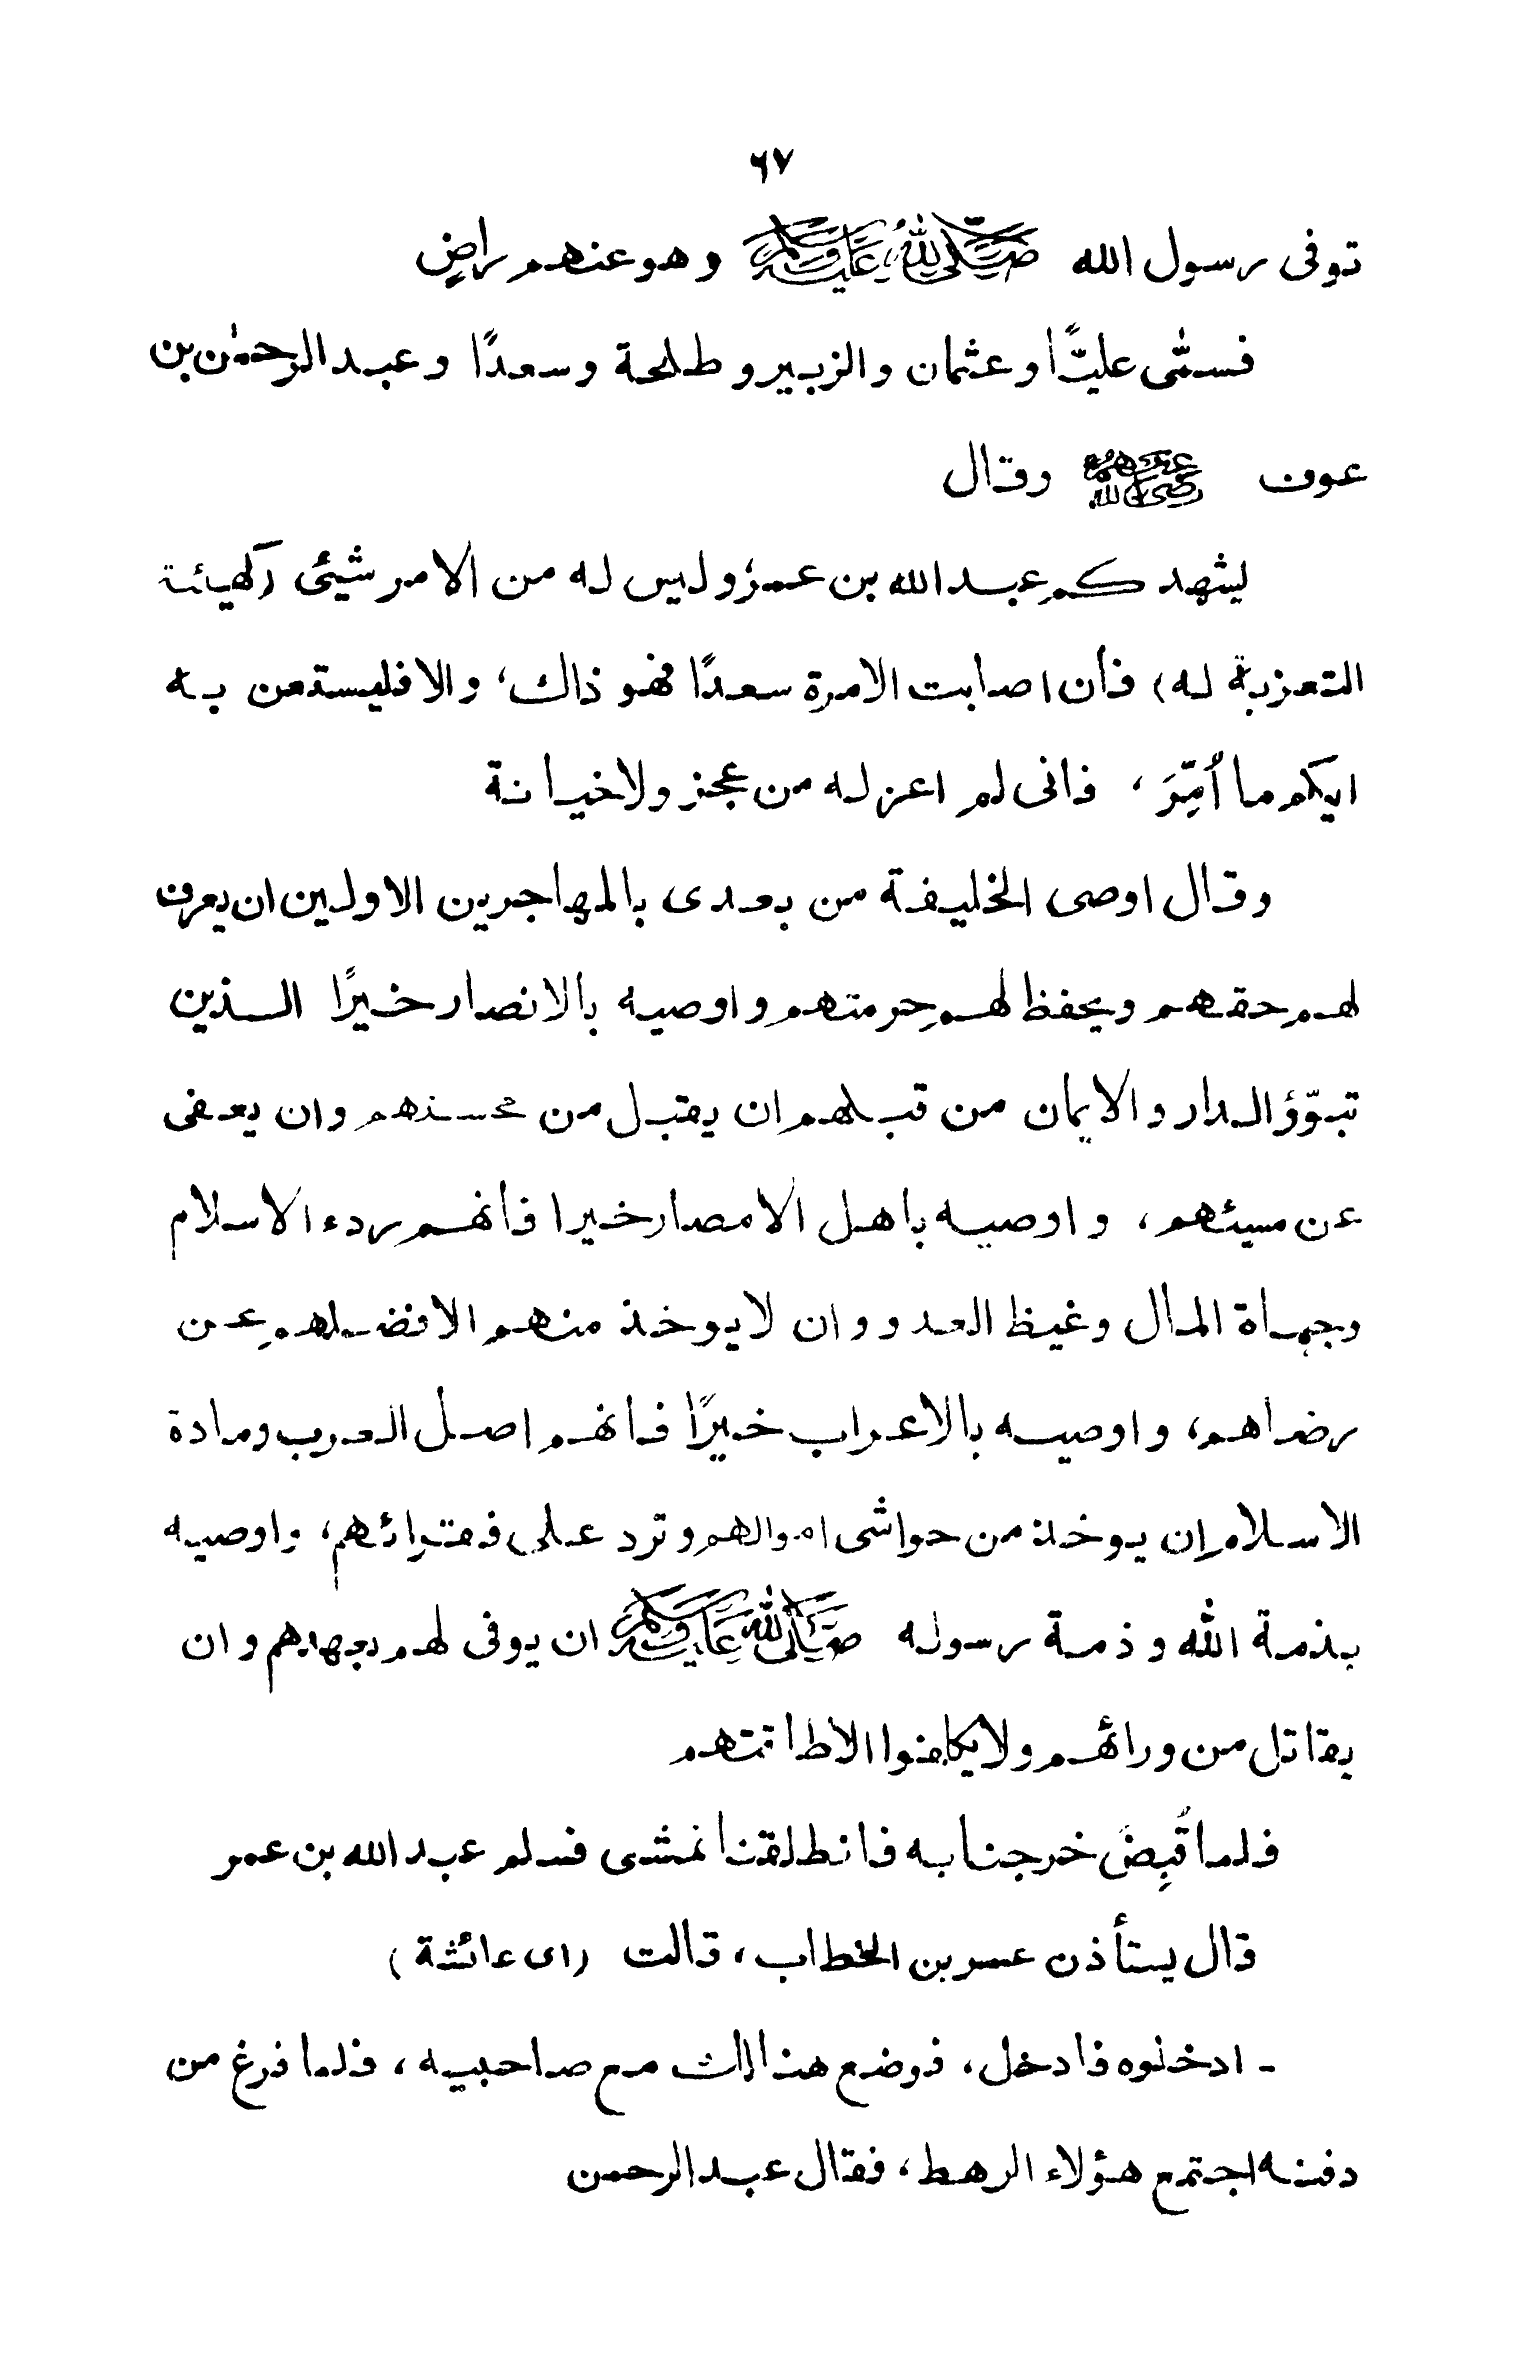 ٦٧
توفى رسول الله صلى الله عليه وسلم وهو عنهم راضٍ
فسمّٰى عليّّا وعثمان والزبير وطلحة وسعدًا وعبد الرحمٰن بن
عوف رضي الله عنهم وقال
ليشهد كم عبد الله بن عمرؓ وليس له من الامر شيئى (كهيئة
التعزية له) فأن اصابت الامرة سعدًا فهو ذاك، والا فليستعن به
ايكم ما اُمِّرَ، فانى لم اعزله من عجز ولا خيانة
وقال اوصى الخليفة من بعدى بالمهاجرين الاولين ان يعرف
لهم حقهم ويحفظ لهم حرمتهم واوصيه بالانصار خيرًا الذين
تبوّؤ الدار والايمان من قبلهم ان يقبل من محسنهم وان يعفى
عن مسيئهم، واوصيه باهل الامصار خيرا فأنهم ردء الاسلام
وجباة المال وغيظ العدو وان لا يوخذ منهم الا فضلهم عن
رضاهم، واوصيه بالاعراب خيرًا فأنهم اصل العرب ومادة
الاسلام ان يوخذ من حواشى اموالهم وترد على فقرائهم، واوصيه
بذمة الله وذمة رسوله صلى الله عليه وسلم ان يوفى لهم بعهدهم وان
يقاتل من ورائهم ولا يكلفوا الا طاقتهم
فلما قُبِضَ خرجنا به فانطلقنا نمشى فسلم عبد الله بن عمر
قال يستأذن عمر بن الخطاب، قالت (اى عائشة)
- ادخلوه فادخل، فوضع هنالك مع صاحبيه، فلما فرغ من
دفنه اجتمع هؤلاء الرهط، فقال عبد الرحمن